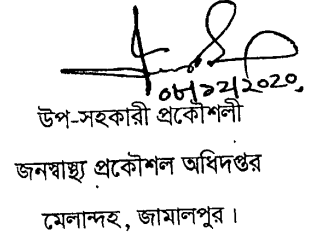 ০৮/১২/২০২০
উপ-সহকারী প্রকৌশলী
জনস্বাস্থ্য প্রকৌশল অধিদপ্তর
মেলান্দহ, জামালপুর।